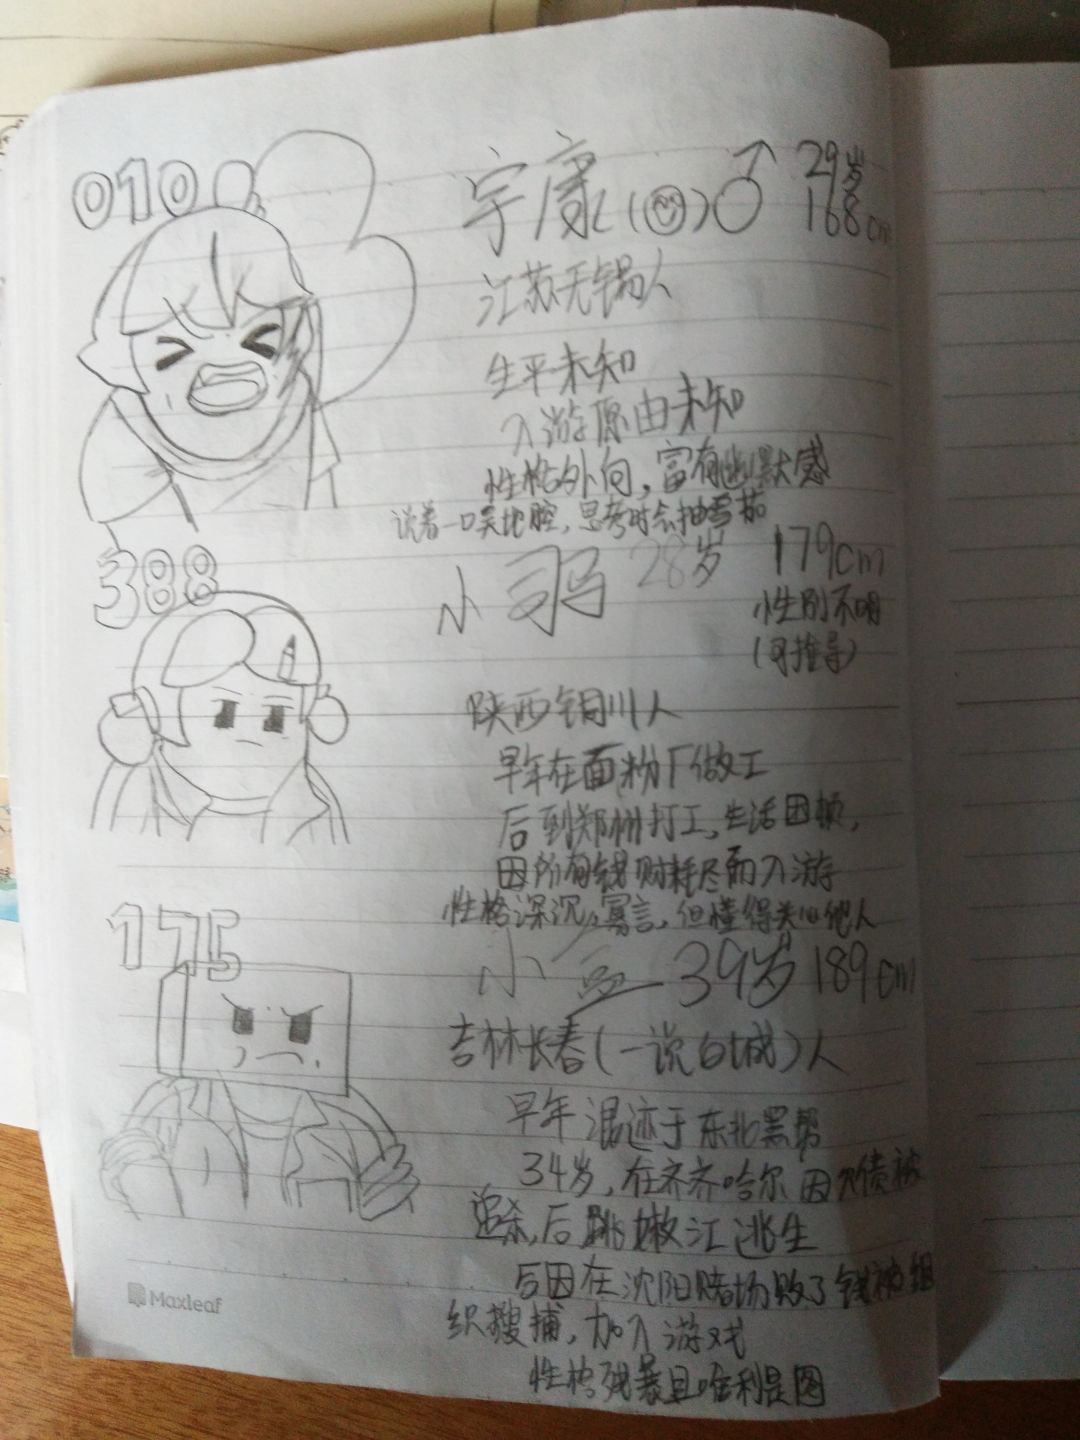 010
宇康 ( ) ♂ 29岁
168cm
江苏无锡人
生平未知
入游原由未知
性格外向，富有幽默感
说着一口吴地腔，思考时会抽雪茄
388
小 28岁 179cm
性别不明
（可推导）
陕西铜川人
早年在面粉厂做工
后到郑州打工，生活困顿，
因所有钱财耗尽而入游
性格深沉，寡言，但懂得关心他人
175
小 39岁 189cm
吉林长春（一说白城）人
早年混迹于东北黑帮
34岁，在齐齐哈尔因欠债被
追杀，后跳嫩江逃生
后因在沈阳赌场败了钱被组
织搜捕，加入游戏
性格残暴且唯利是图
Maxleaf